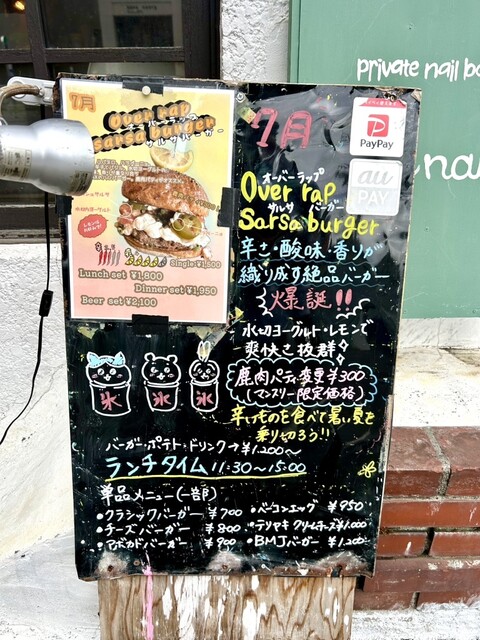 private nail bo
na
7月
Over rap
オーバーラップ
sarsa burger
サルサバーガー
レモンは
お好みで!
Single ¥1,500
Lunch set ¥1,800
Dinner set ¥1,950
Beer set ¥2,100
7月
PayPay
au
PAY
オーバーラップ
Over rap
サルサ バーガー
Sarsa burger
辛さ・酸味・香りが
織り成す絶品バーガー
爆誕!!
水切ヨーグルト・レモンで
爽快さ抜群
鹿肉パティ変更¥300
(マンスリー限定価格)
辛いものを食べて暑い夏を
乗り切ろう!!
氷 氷 氷
バーガー・ポテト・ドリンク→¥1,200〜
ランチタイム 11:30〜15:00
単品メニュー(一部)
・クラシックバーガー ¥700 ・ベーコンエッグ ¥950
・チーズバーガー ¥800 ・テリヤキクリームチーズ ¥1,000
・アボカドバーガー ¥900 ・BMJバーガー ¥1,200